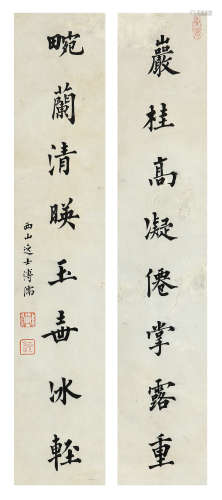 巖桂高凝僊掌露重
畹蘭清暎玉壺冰輕
西山逸士溥濡